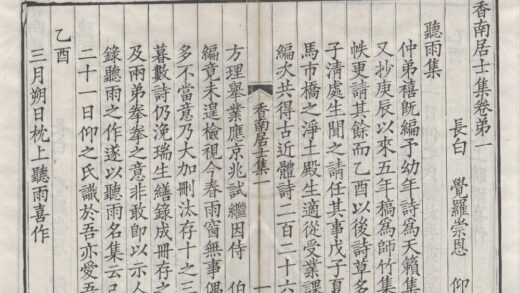 香南居士集卷第一
長白 覺羅崇恩 仰
聽雨集
仲弟禧既編予幼年詩爲天籟集
又抄庚辰以來五年稿爲師竹集
帙更請其餘而乙酉以後詩草多
子清處生聞之請任其事戊子夏
馬市橋之淨土殿生適從受業課
編次共得古近體詩二百二十六
香南居士集一
一
方理舉業應京兆試繼因侍 伯
編竟未遑檢視今春雨窗無事偶
多不當意乃大加刪汰存十之三
暮數詩仍浼瑞生繕錄成冊存之
及兩弟拳拳之意非敢即以示人
錄聽雨之作遂以聽雨名集云已
二十一日仰之氏識於吾亦愛吾
乙酉
三月朔日枕上聽雨喜作